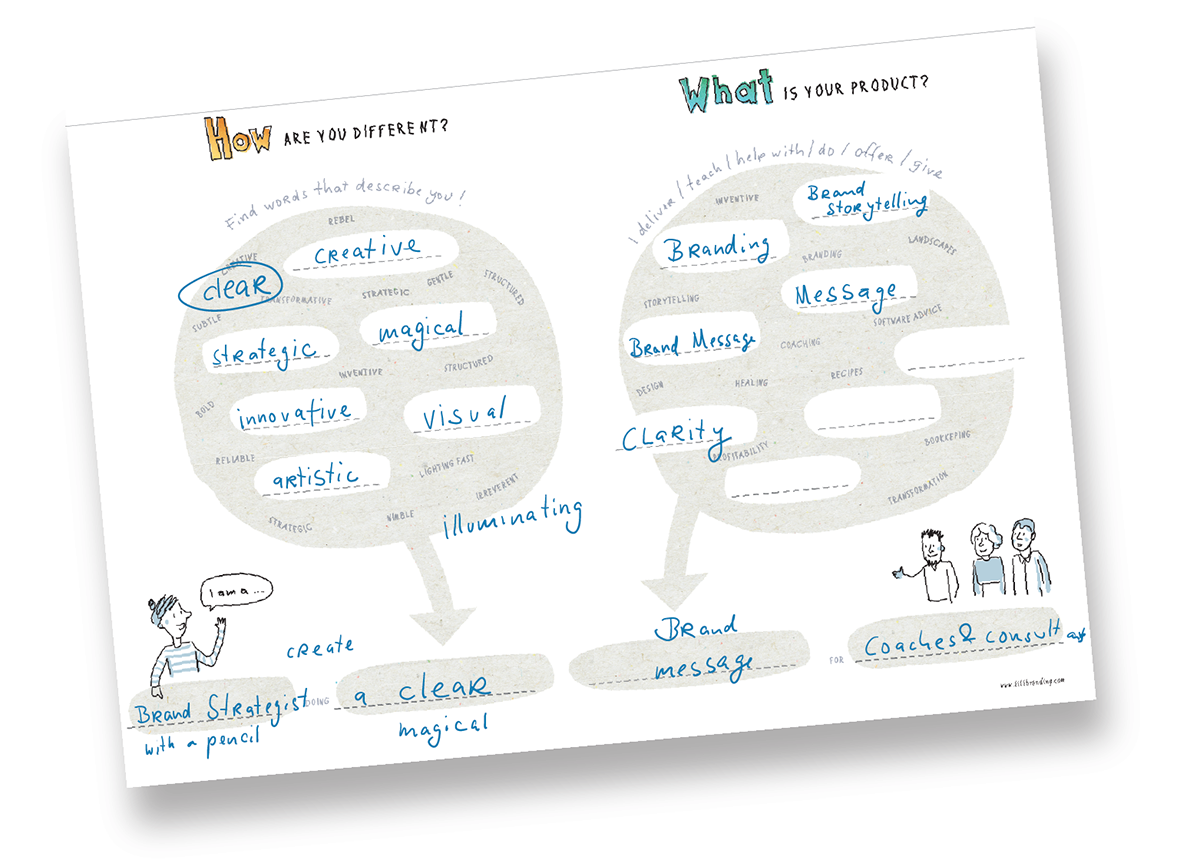 How ARE YOU DIFFERENT?
Find words that describe you!
REBEL
CREATIVE
CREATIVE
clear
TRANSFORMATIVE
STRATEGIC
GENTLE
STRUCTURED
SUBTLE
strategic
magical
INVENTIVE
STRUCTURED
BOLD
innovative
visual
RELIABLE
artistic
LIGHTING FAST
IRREVERENT
STRATEGIC
NIMBLE
illuminating
What IS YOUR PRODUCT?
I deliver / teach / help with / do / offer / give
INVENTIVE
Brand
Storytelling
Branding
BRANDING
LANDSCAPES
STORYTELLING
Message
SOFTWARE ADVICE
Brand Message
COACHING
DESIGN
HEALING
RECIPES
Clarity
PROFITABILITY
BOOKKEPING
TRANSFORMATION
I am a ...
create
Brand Strategist
with a pencil
DOING
a clear
magical
Brand
message
FOR
Coaches & consultants